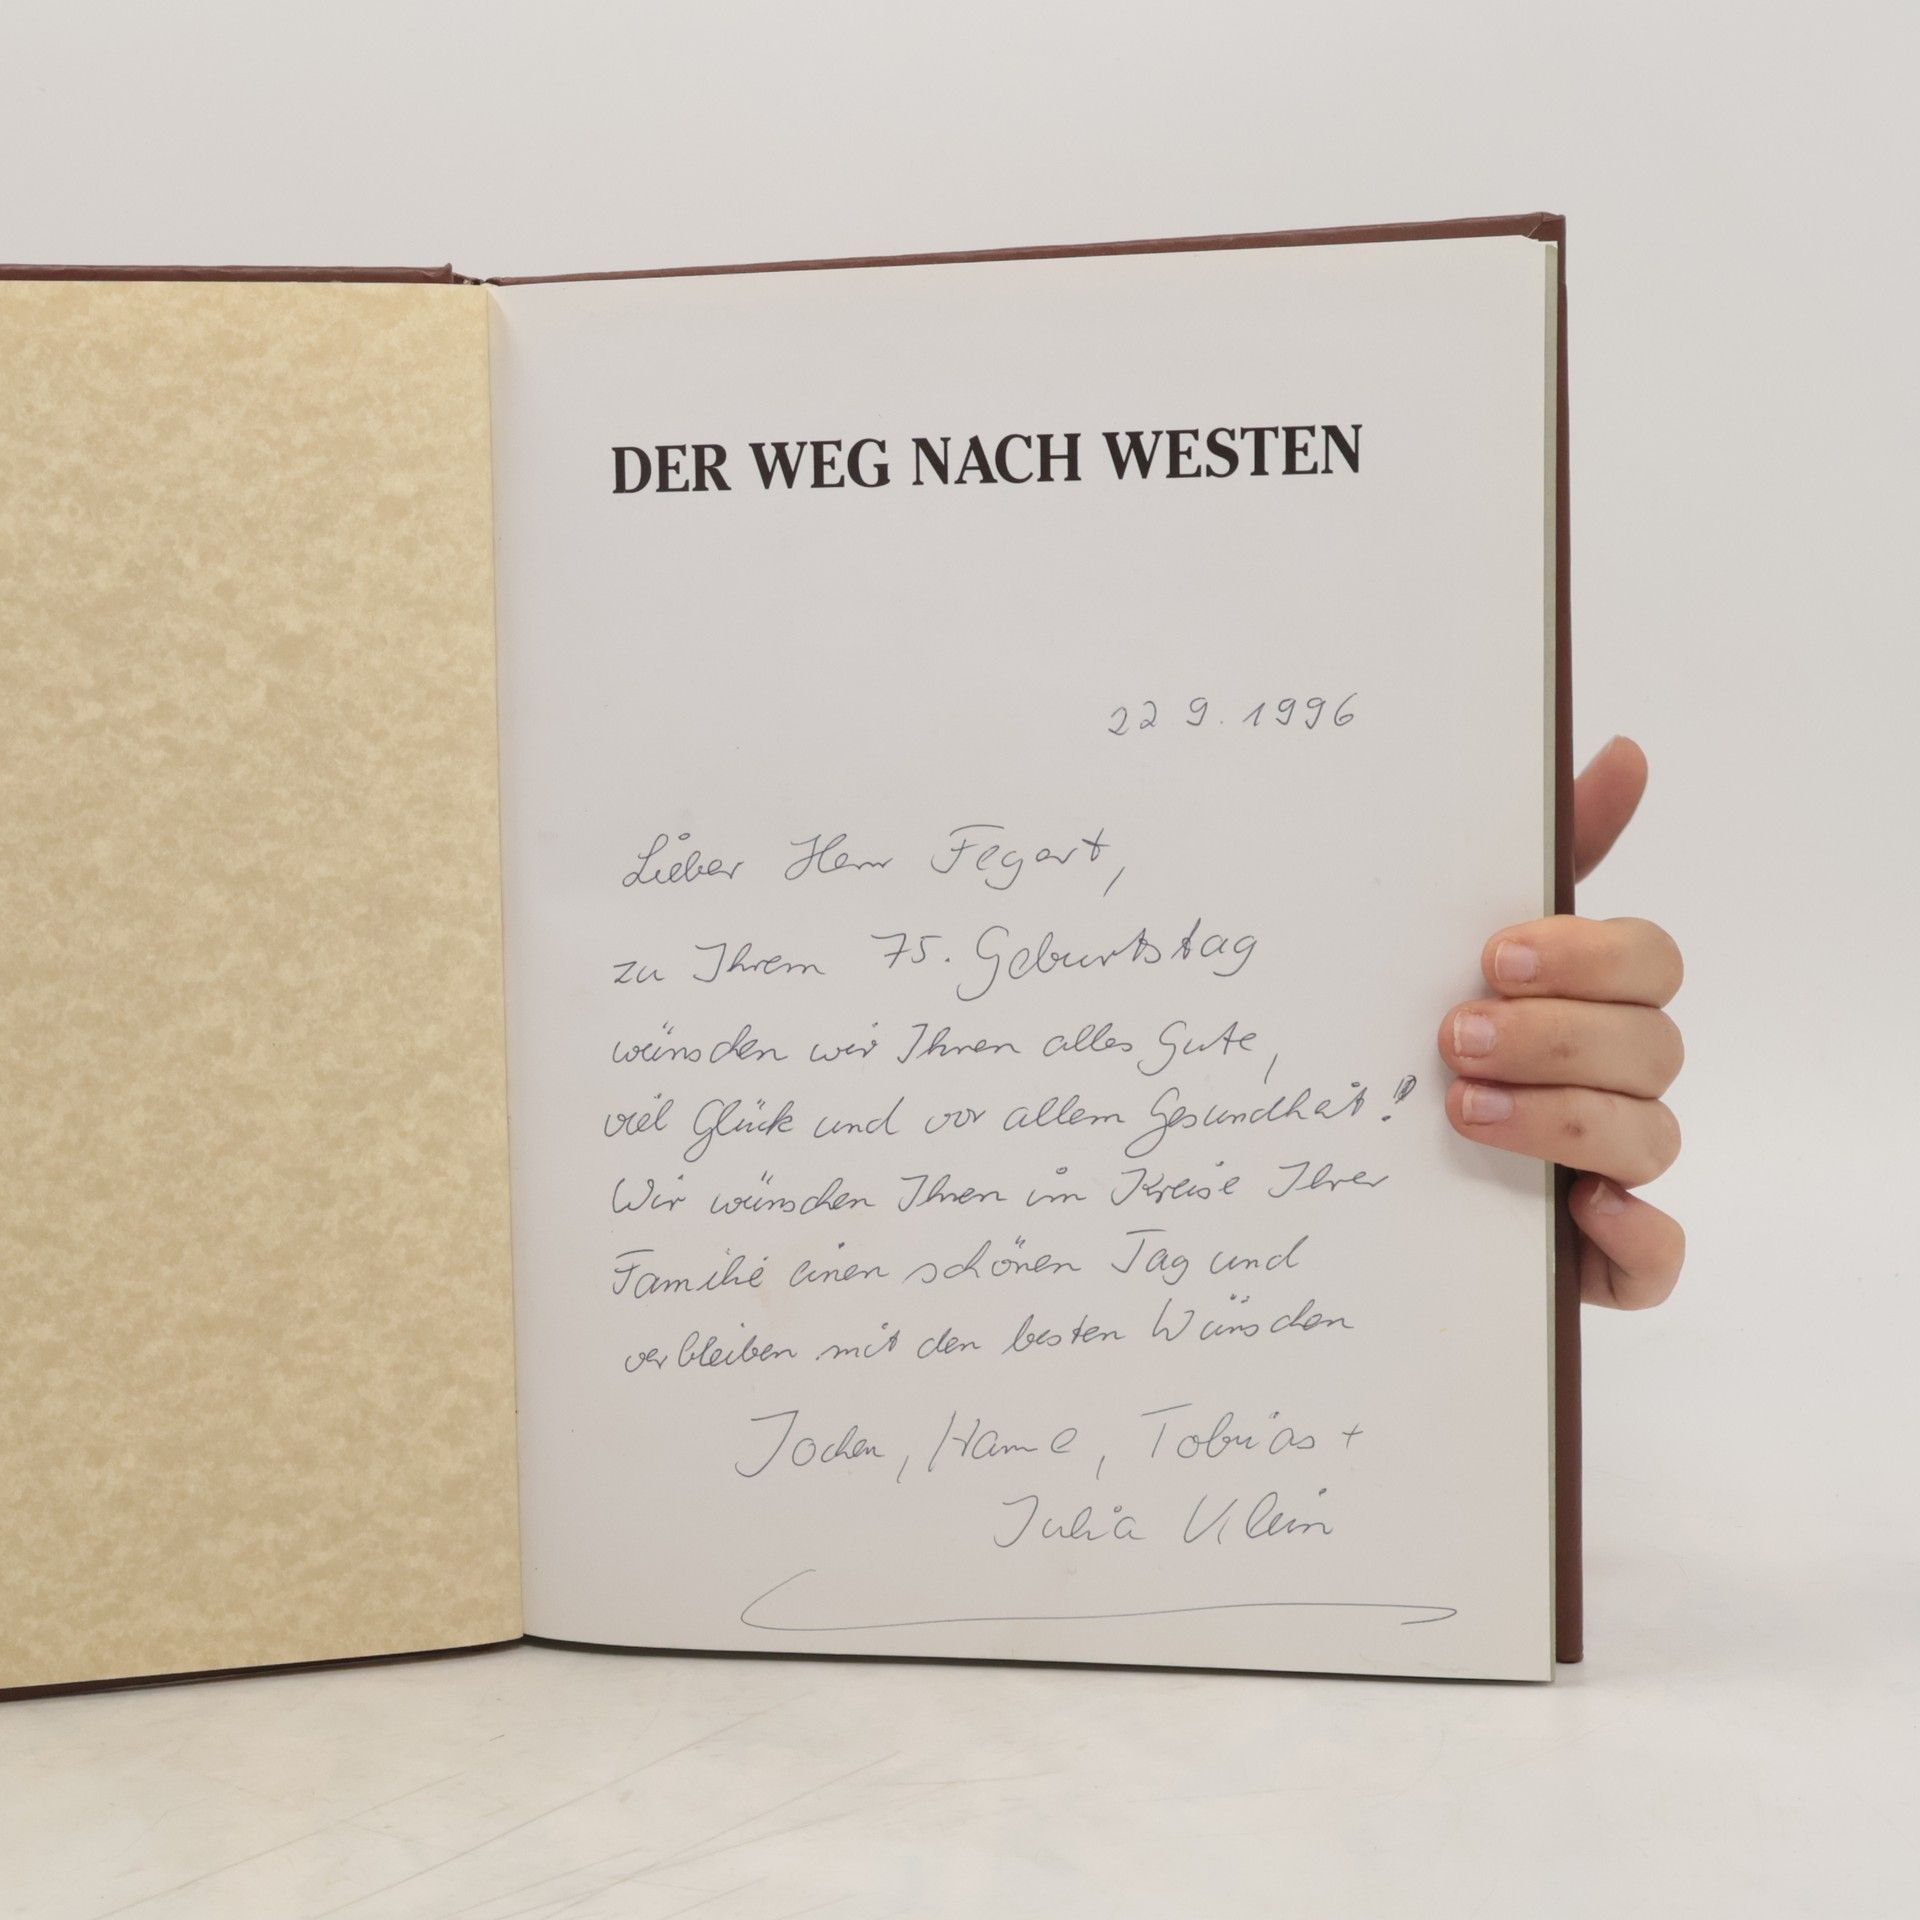 DER WEG NACH WESTEN
22 9. 1996
Lieber Herr Fegert,
zu Ihrem 75. Geburtstag
wünschen wir Ihnen alles Gute,
viel Glück und vor allem Gesundheit!
Wir wünschen Ihnen im Kreise Ihrer
Familie einen schönen Tag und
verbleiben mit den besten Wünschen
Jochen, Hanne, Tobias +
Julia Klein